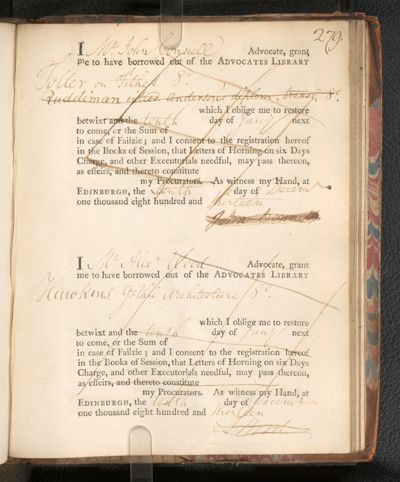 279.
I Mr John Connell Advocate, grant
me to have borrowed out of the ADVOCATES LIBRARY
Toller on Tithes 8º.
Ruddiman Anderson's diplom. 8º.
which I oblige me to restore
betwixt and the tenth day of Jany next
to come, or the Sum of
in case of Failzie; and I consent to the registration hereof
in the Books of Session, that Letters of Horning on six Days
Charge, and other Executorials needful, may pass thereon,
as effeirs, and thereto constitute
my Procurators. As witness my Hand, at
EDINBURGH, the tenth day of Decemr
one thousand eight hundred and thirteen
John Connell
I Mr Alexr Wood Advocate, grant
me to have borrowed out of the ADVOCATES LIBRARY
Hawkins Gothic Architecture 8º.
which I oblige me to restore
betwixt and the tenth day of Jany next
to come, or the Sum of
in case of Failzie; and I consent to the registration hereof
in the Books of Session, that Letters of Horning on six Days
Charge, and other Executorials needful, may pass thereon,
as effeirs, and thereto constitute
my Procurators. As witness my Hand, at
EDINBURGH, the tenth day of Decemr
one thousand eight hundred and thirteen
A Wood